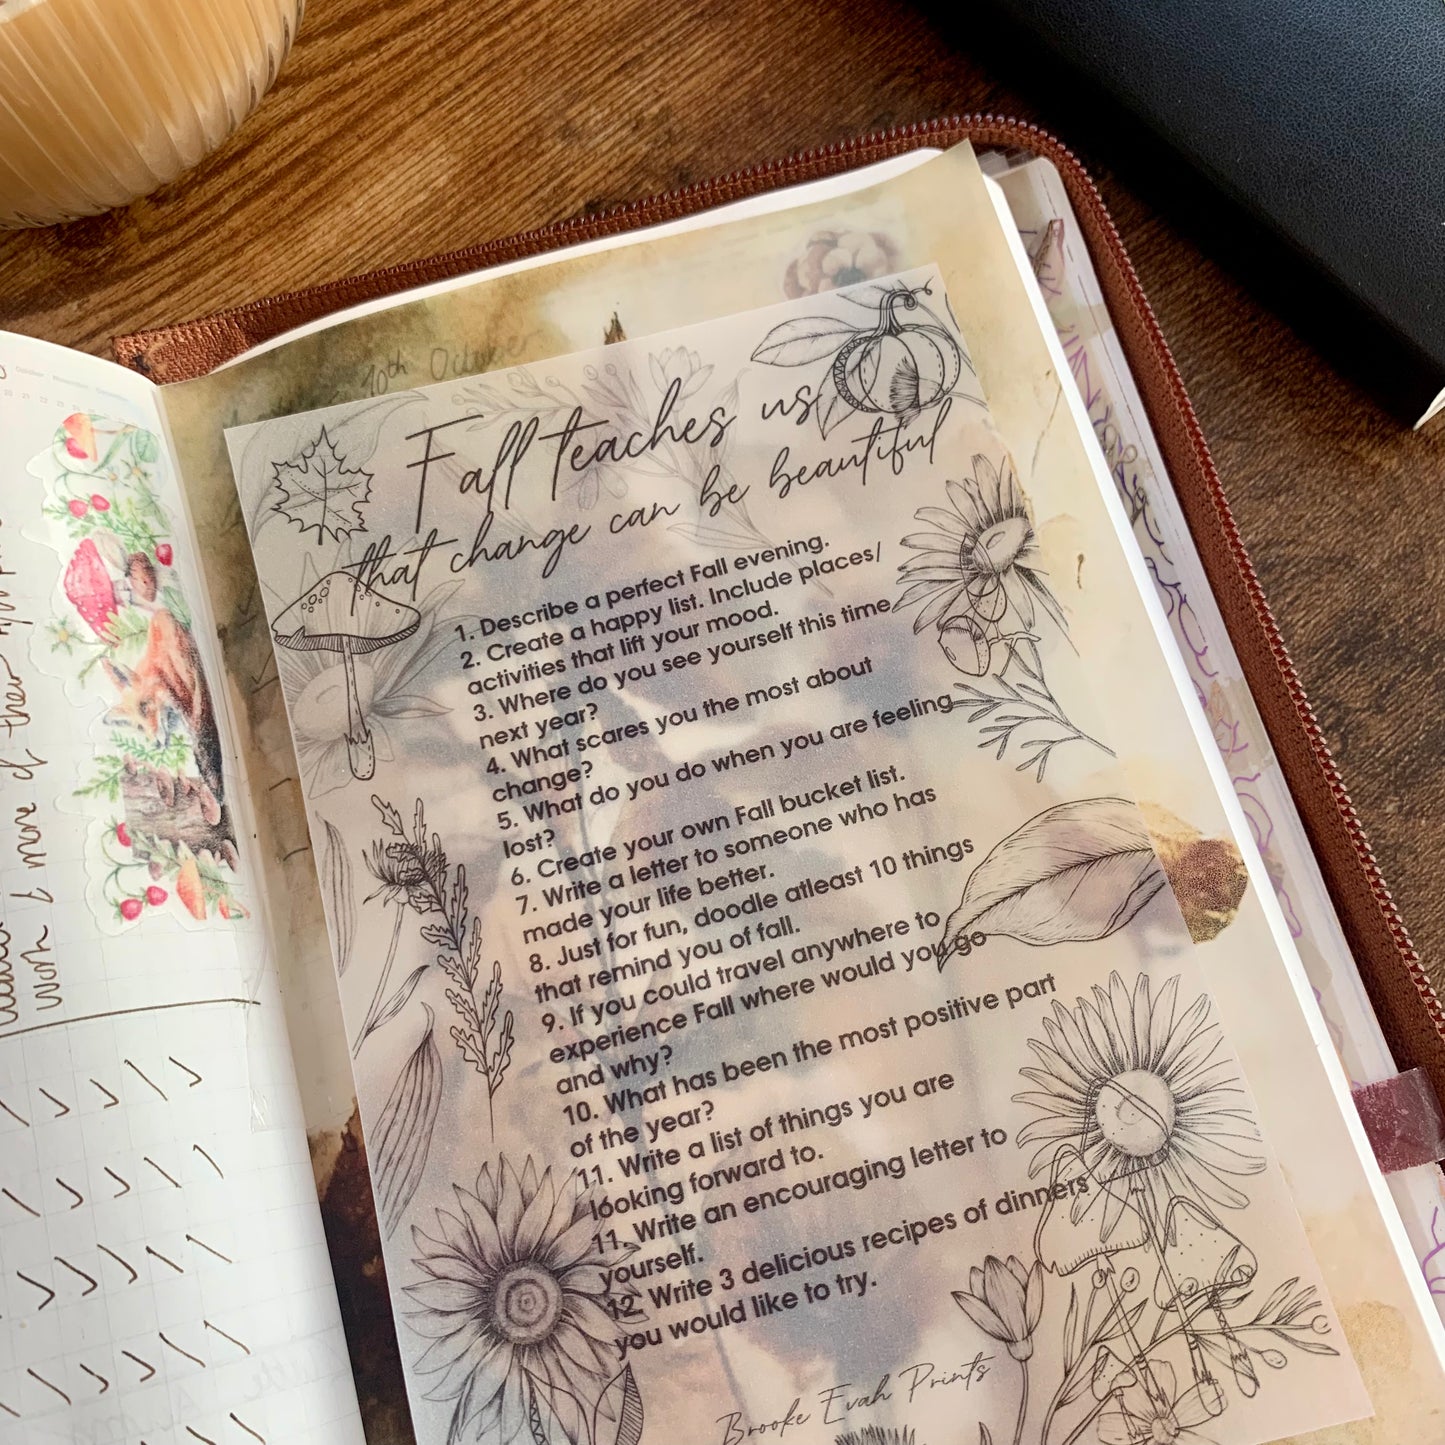 October
November
10th October
Fall teaches us
that change can be beautiful
1. Describe a perfect Fall evening.
2. Create a happy list. Include places/
activities that lift your mood.
3. Where do you see yourself this time
next year?
4. What scares you the most about
change?
5. What do you do when you are feeling
lost?
6. Create your own Fall bucket list.
7. Write a letter to someone who has
made your life better.
8. Just for fun, doodle atleast 10 things
that remind you of fall.
9. If you could travel anywhere to
experience Fall where would you go
and why?
10. What has been the most positive part
of the year?
11. Write a list of things you are
looking forward to.
11. Write an encouraging letter to
yourself.
12. Write 3 delicious recipes of dinners
you would like to try.
Brooke Evah Prints
& more of their
work